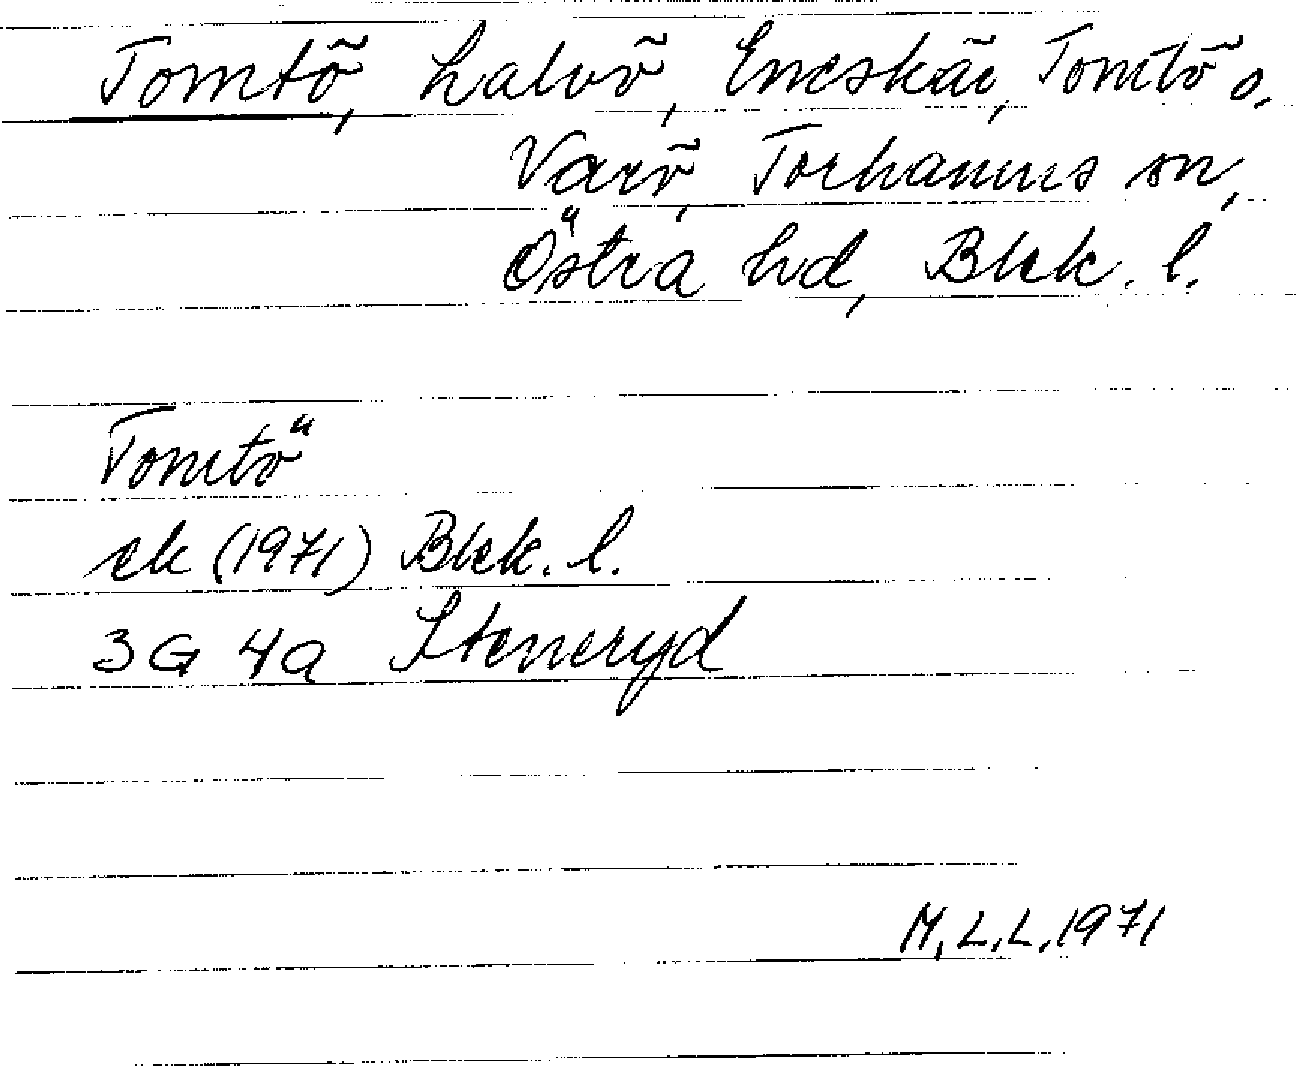 Tomtö, halvö, Eneskär, Tomtö o.
Varö, Torhamns sn,
Östra hd, Blek. l.
Tomtö
ek (1971) Blek. l.
3G 4a Steneryd
M.L.L. 1971